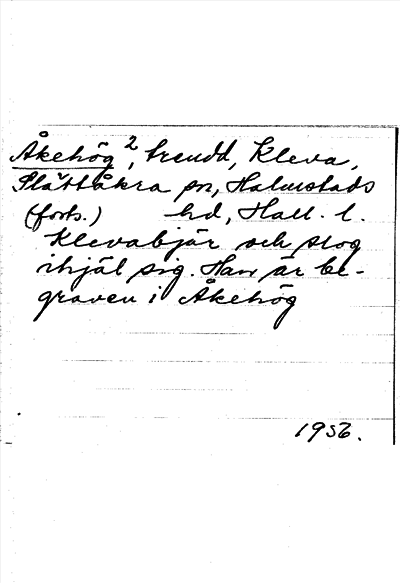 Åkehög 2, trendd, Kleva,
Slättåkra sn, Halmstads
(forts.) hd, Hall. l.
Klevabjär och slog
ihjäl sig. Han är be-
graven i Åkehög
1956.